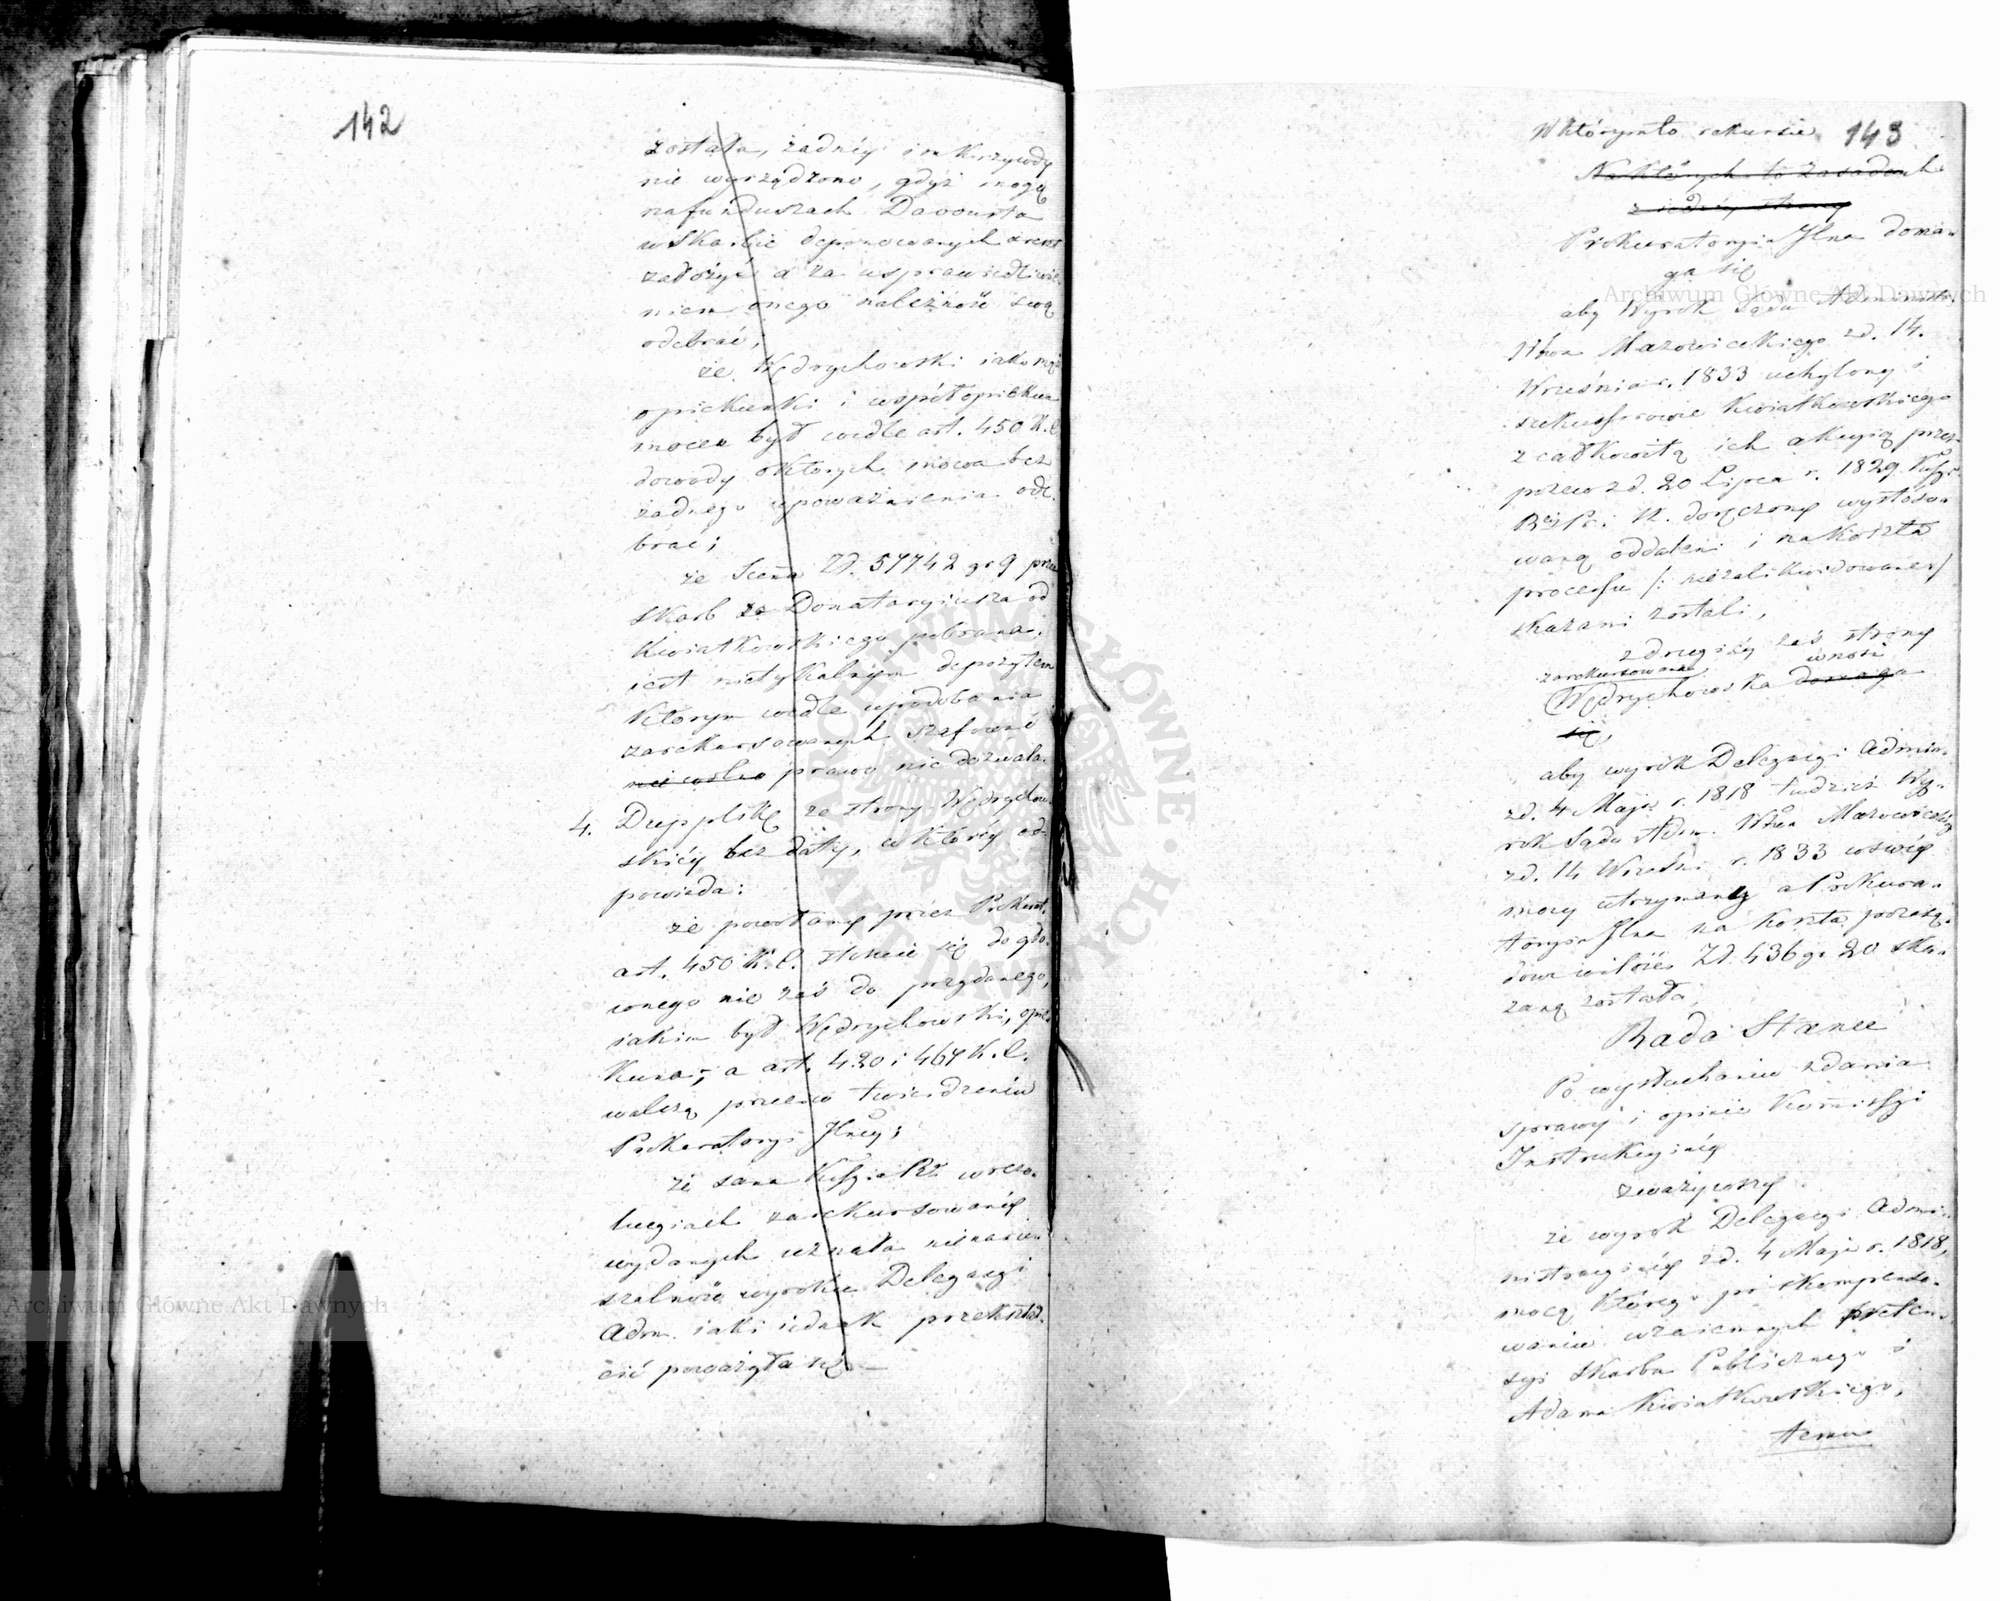 142
została, żadnéy im krzywdy
nie wyrządzono, gdyż mogą
na funduszach Davousta
w Skarbie deponowanych areszt
założyć a za usprawiedliwie-
niem onego należność swą
odebrać;
że Wędrychowski iako mąż
opiekunki i współopiekun
mocen był wedle art. 450 K.C.
dowody o których mowa bez
żadnego upoważnienia ode-
brać;
że Summa Zł. 57742 gr 9 przez
Skarb za Donataryiusza od
Kwiatkowskiego pobrana
iest nietykalnym depozytem
którym wedle upodobania
zarekursowanych szafować
prawo nie dozwala.
4. Dupplikę ze strony Wędrychow-
skiéy bez daty, w któréy od-
powiada:
że powołany przez Prokurat.
art. 450 K.C. stosuie się do głó-
wnego nie zaś do przydanego,
iakim był Wędrychowski, opie-
kuna; a art. 420 i 467 K.C.
walczą przeciw twierdzeniu
Prokuratoryi Jlney;
że sama Kssya Rz. w rezo-
lucyiach zarekursowanéy
wydanych uznała nienaru-
szalność wyroku Delegacyi
Adm. iaki iednak przekształ-
cić poważyła się. —
143
W którymto rekursie
Na których to zasadach
z iednéy strony
Prokuratorya Jlna doma-
ga się
aby Wyrok Sądu Administr.
Wtwa Mazowieckiego z d. 14.
Września r. 1833 uchylony i
sukcessorowie Kwiatkowskiego
z całkowitą ich akcyią prze-
ciw zd. 20 Lipca r. 1829 Kssyi
Rz. Pr. i K. doręczony wystóso-
waną oddaleni i na koszta
processu /: niezalikwidowane :/
skazani zostali,
z drugiéy zaś strony
zarekursowana wnosi
Wędrychowska domaga
się,
aby wyrok Delegacyi Admin.
z d. 4 Maja r. 1818 tudzież Wy-
rok Sądu Adm. Wtwa Mazowieckiego
z d. 14 Wrześni r. 1833 w swéy
mocy utrzymany a Prokura-
torya Jlna na koszta processu
w ilości Zł. 436 gr 20 ska-
zaną została;
Rada Stanu
Po wysłuchaniu zdania
sprawy i opinii Kommissyi
Instrukcyinéy
zważywszy
że wyrok Delegacyi Admi-
nistracyinéy z d. 4 Maja r. 1818,
mocą którego po skompenso-
waniu wzaiemnych preten-
syi Skarbu Publicznego i
Adama Kwiatkowskiego,
temu
Archiwum Główne Akt Dawnych
Archiwum Główne Akt Dawnych
ARCHIWUM GŁÓWNE AKT DAWNYCH